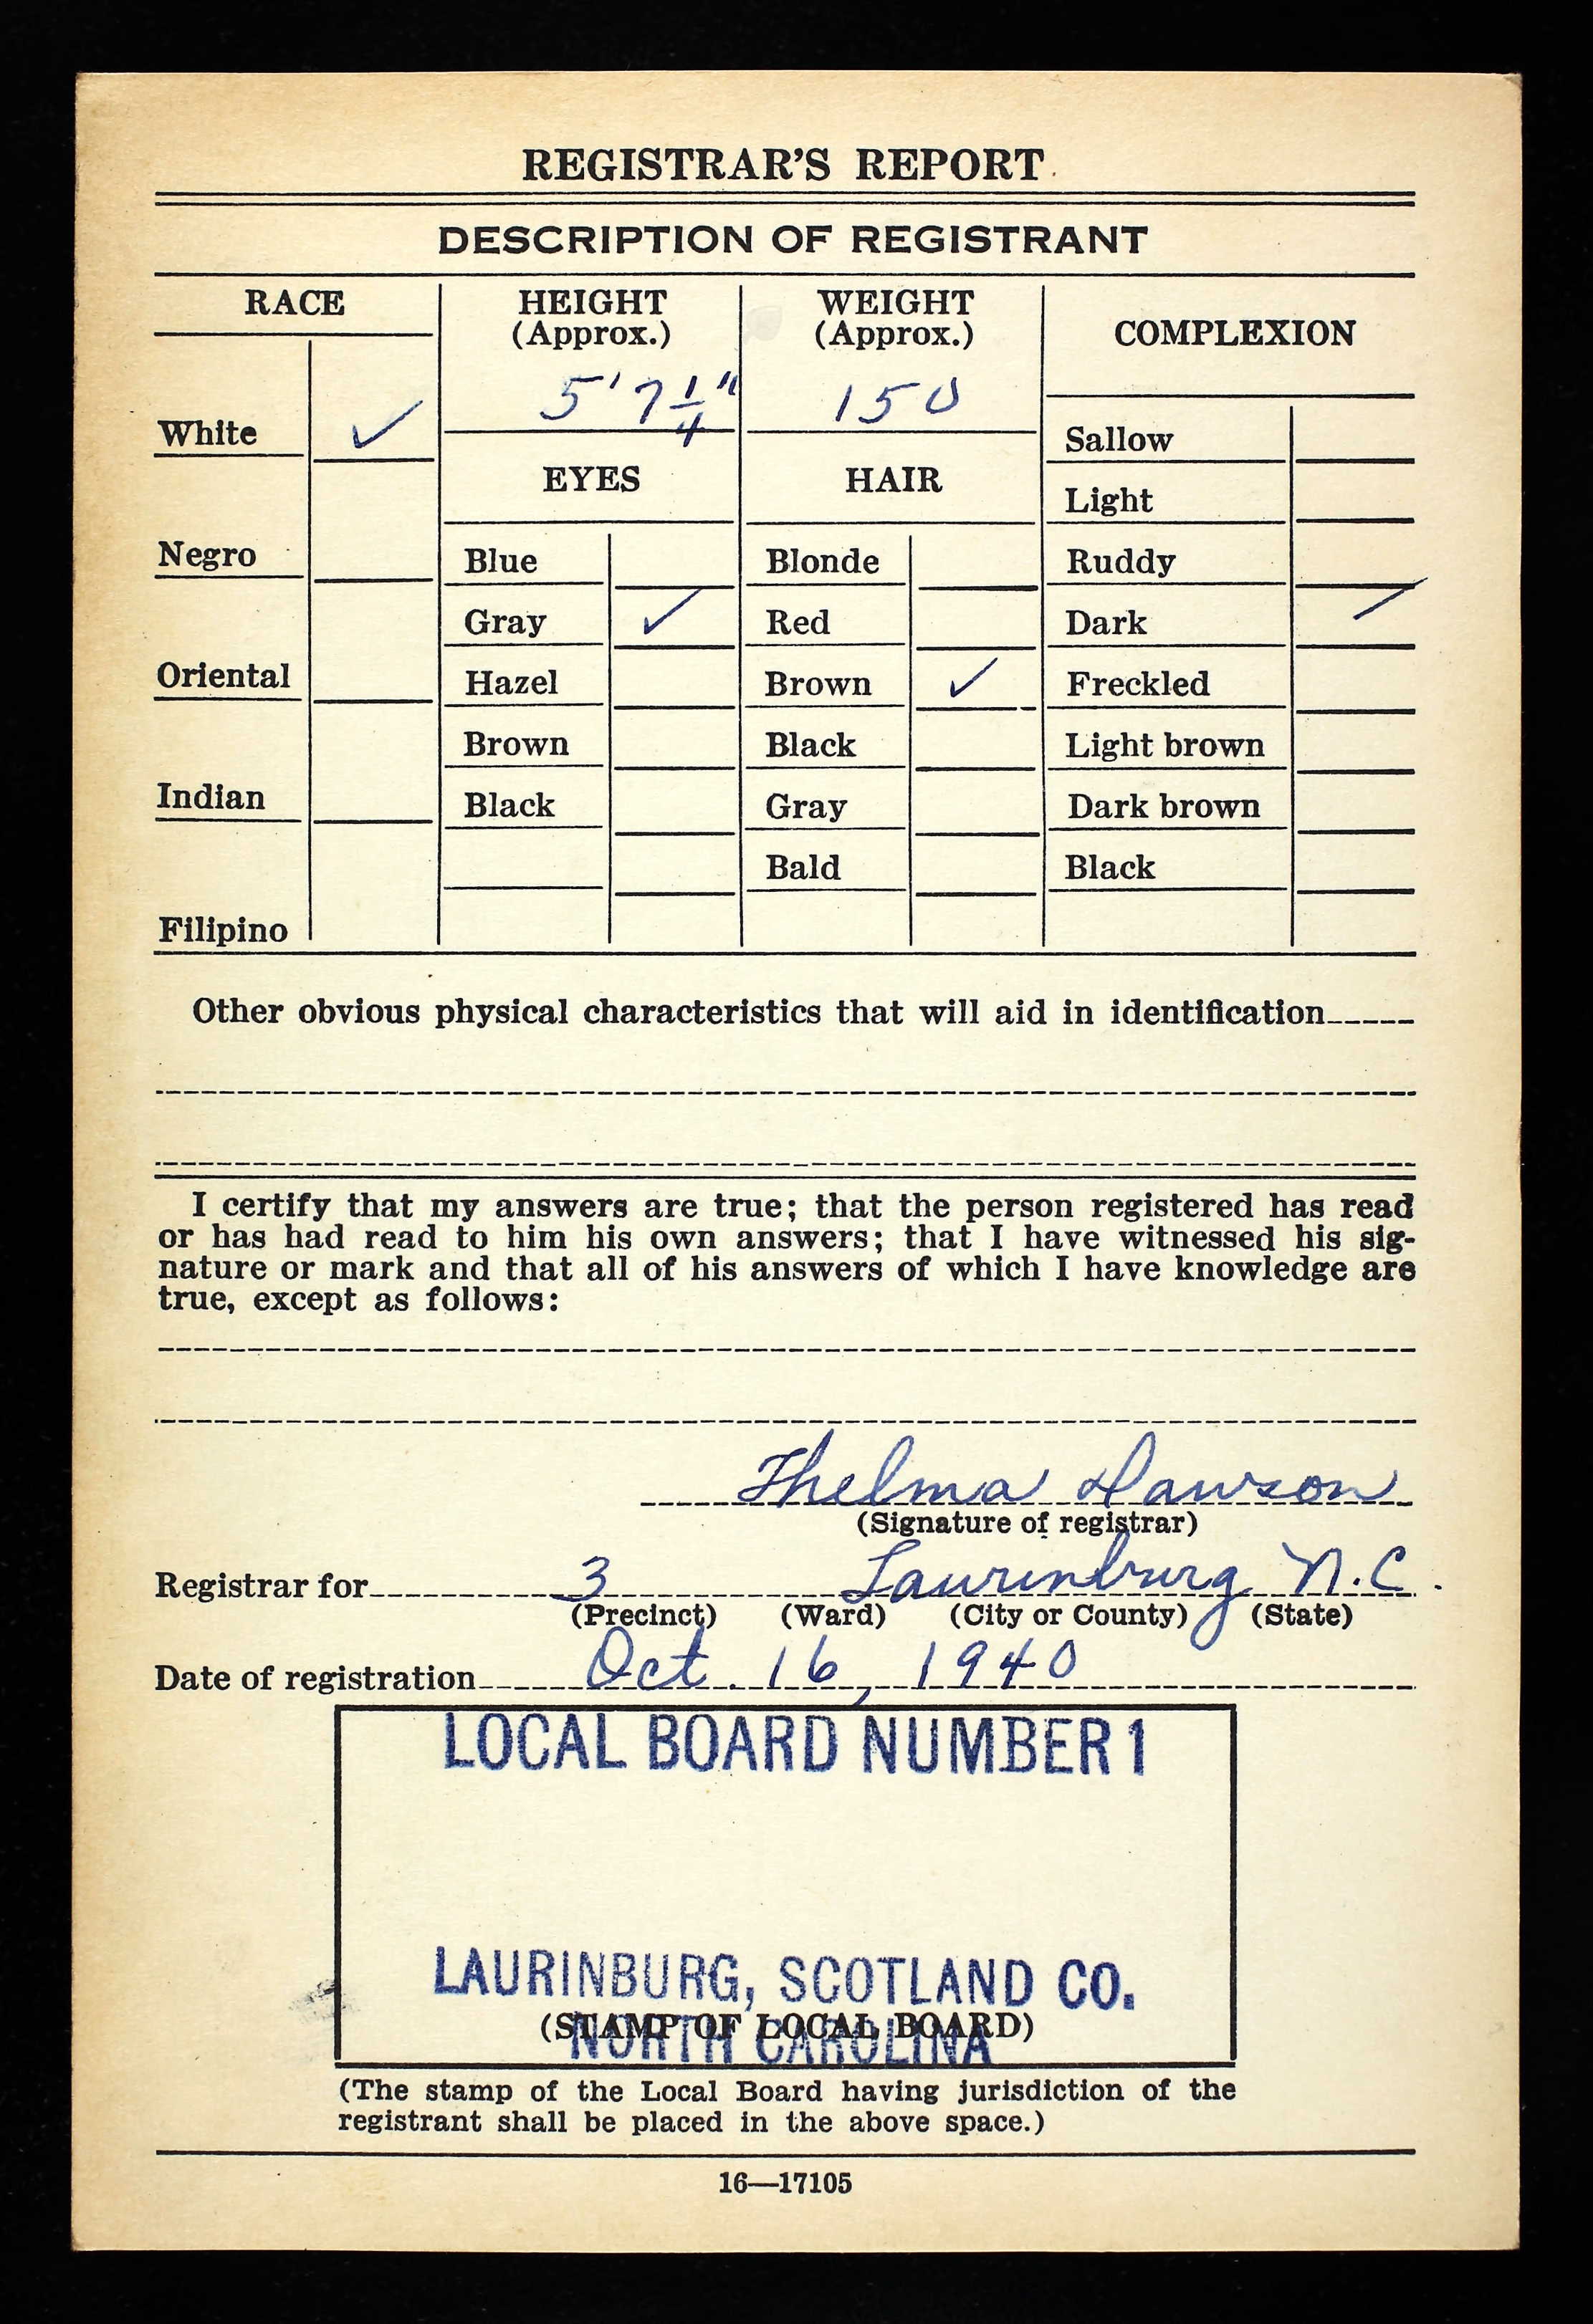 REGISTRAR'S REPORT
DESCRIPTION OF REGISTRANT
RACE
HEIGHT
(Approx.)
WEIGHT
(Approx.)
COMPLEXION
5' 7 1/4"
150
White ✓
Sallow
EYES
HAIR
Light
Negro
Blue
Blonde
Ruddy
Gray ✓
Red
Dark /
Oriental
Hazel
Brown ✓
Freckled
Brown
Black
Light brown
Indian
Black
Gray
Dark brown
Bald
Black
Filipino
Other obvious physical characteristics that will aid in identification
I certify that my answers are true; that the person registered has read
or has had read to him his own answers; that I have witnessed his sig-
nature or mark and that all of his answers of which I have knowledge are
true, except as follows:
Thelma Dawson
(Signature of registrar)
Registrar for 3 Laurinburg N.C.
(Precinct) (Ward) (City or County) (State)
Date of registration Oct. 16, 1940
LOCAL BOARD NUMBER 1
LAURINBURG, SCOTLAND CO.
(STAMP OF LOCAL BOARD)
NORTH CAROLINA
(The stamp of the Local Board having jurisdiction of the
registrant shall be placed in the above space.)
16—17105